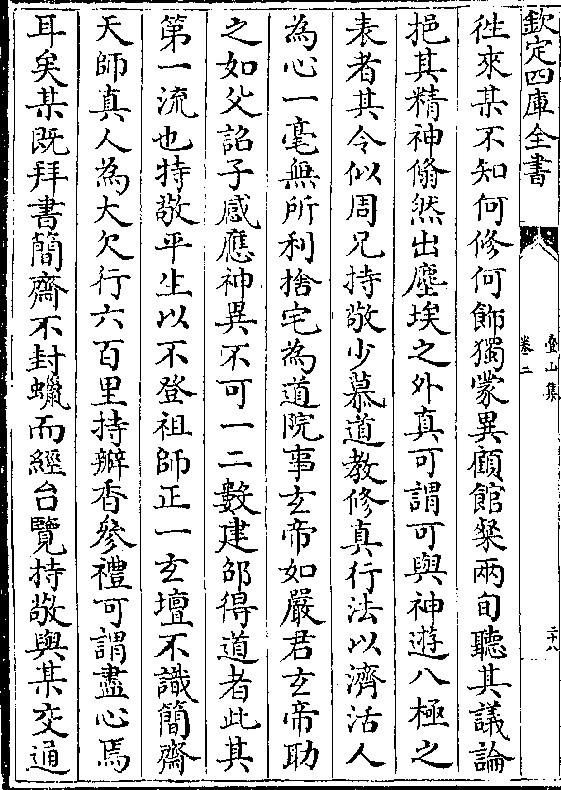 欽定四庫全書
疊山集
卷二
二十八
徃來某不知何修何飾獨蒙異顧館粲兩旬聽其議論
挹其精神翛然出塵埃之外真可謂可與神遊八極之
表者其令似周兄持敬少慕道教修真行法以濟活人
為心一毫無所利捨宅為道院事玄帝如嚴君玄帝助
之如父詔子感應神異不可一二數建邵得道者此其
第一流也持敬平生以不登祖師正一玄壇不識簡齋
天師真人為大欠行六百里持瓣香參禮可謂盡心焉
耳矣某既拜書簡齋不封蠟而經台覽持敬與某交通